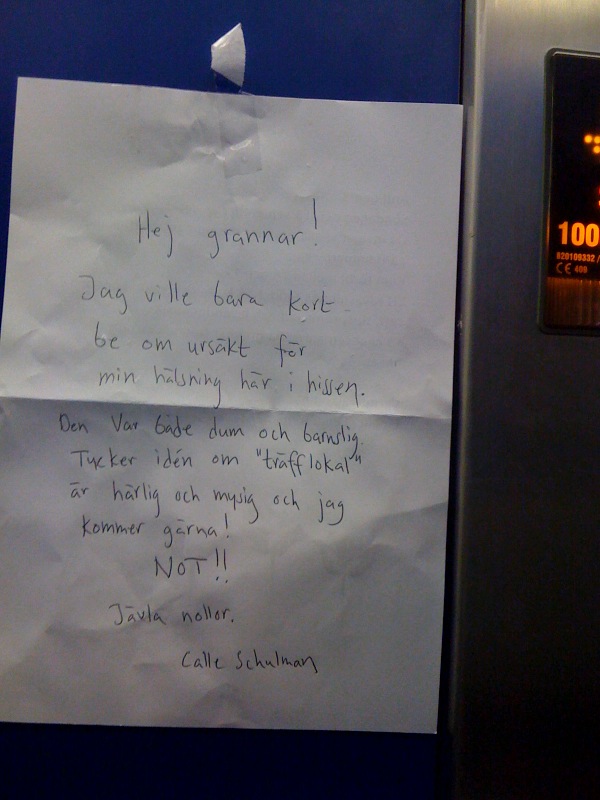 Hej grannar!
Jag ville bara kort
be om ursäkt för
min hälsning här i hissen.
Den Var både dum och barnslig.
Tycker idén om "träfflokal"
är härlig och mysig och jag
kommer gärna!
NOT!!
Jävla nollor.
Calle Schulman
100
820100332 /
CE 409